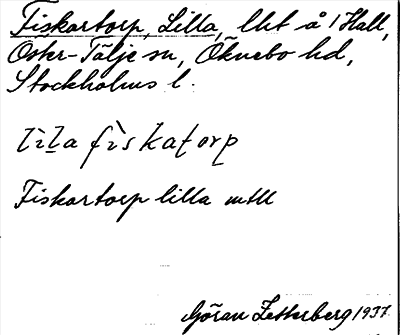 Fiskartorp, Lilla, lht å 1 Hall,
Öster-Tälje sn, Öknebo hd,
Stockholms l.
lìla fìskatorp
Fiskartorp lilla mtU
Göran Zetterberg 1937